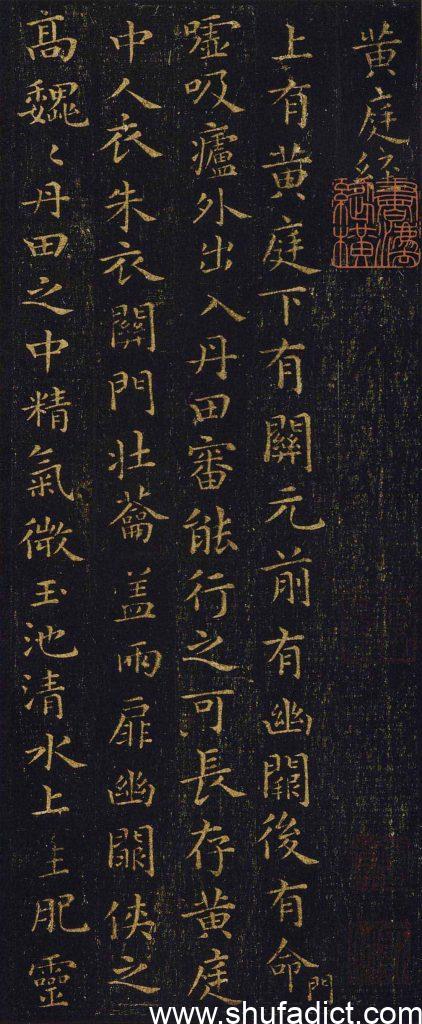 黄庭經
上有黄庭下有關元前有幽闕後有命門
嘘吸廬外出入丹田審能行之可長存黄庭
中人衣朱衣關門壯蘥盖兩扉幽闕俠之
高巍〻丹田之中精氣微玉池清水上生肥靈
www.shufadict.com